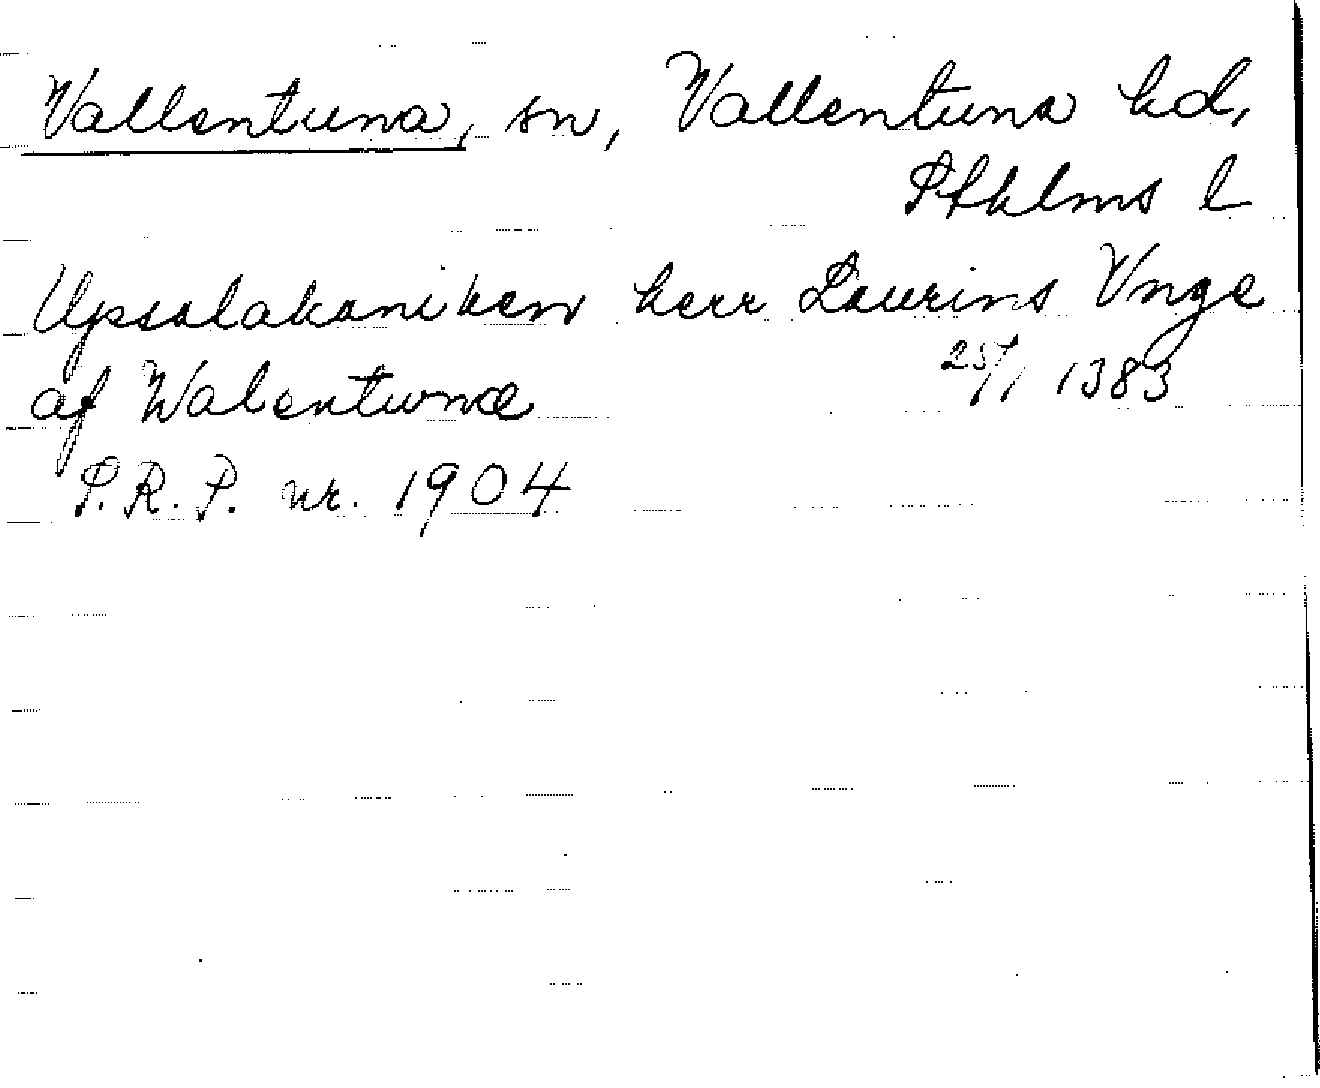 Vallentuna, sn, Vallentuna hd,
Sthlms l
Upsalakaniken herr Laurins Vnge
af Walentunæ 25/1 1383
S.R.P. nr. 1904